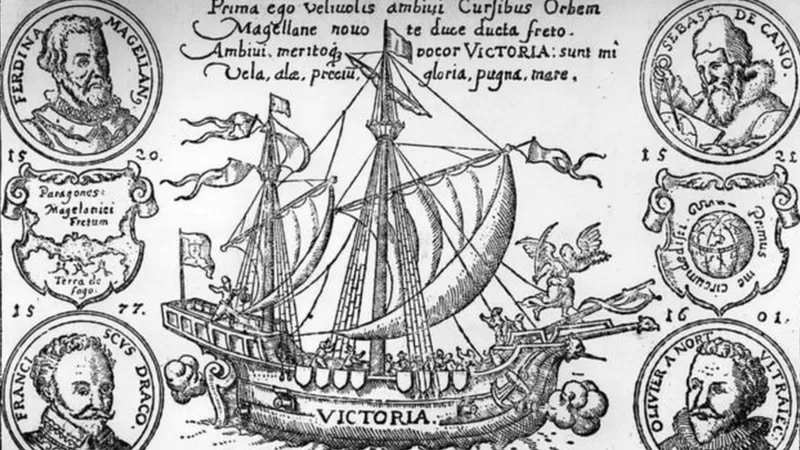 Prima ego velivolis ambivi Cursibus Orbem
Magellane novo te duce ducta freto.
Ambivi, meritoq₃ vocor VICTORIA: sunt mi
Vela, alæ, preciu, gloria, pugna, mare.
FERDINA MAGELLAN.
SEBAST. DE CANO.
15 20.
15 21
Paragones:
Magelonici
Fretum
Terra de
fogo.
Primus me circumdedisti
15 77.
16 01.
FRANCISCVS DRACO.
OLIVIER A NORT VLTRAIEC:
VICTORIA.